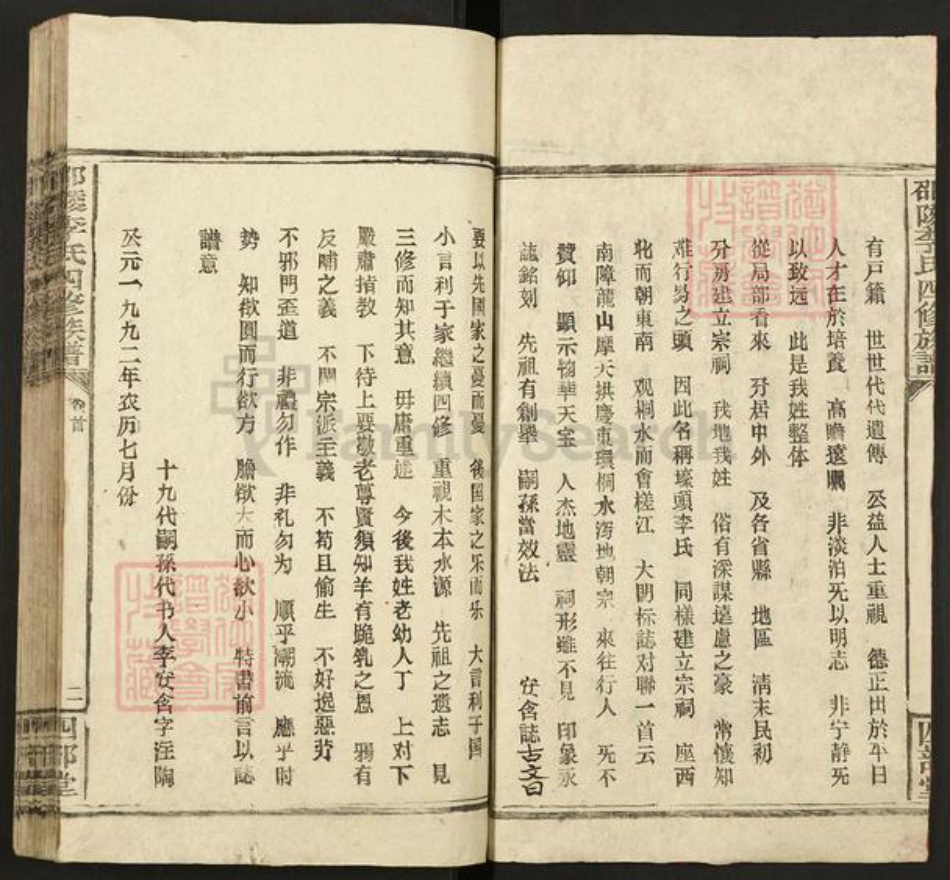 邵陵李氏四修族譜
四部堂
有戸籍　世世代代遺傳　公益人士重視　德正出於平日
人才在於培養　高瞻遠矚　非淡泊旡以明志　非宁静旡
以致远　此是我姓整体
從局部看來　分居中外　及各省縣　地區　清末民初
分房建立宗祠　我地我姓　俗有深謀遠慮之豪　常懷知
难行易之頭　因此名稱壕頭李氏　同樣建立宗祠　座西
北而朝東南　观桐水而會槎江　大門标誌对聯一首云
南障龍山摩天拱慶東環桐水泻地朝宗　來往行人　旡不
贊仰　顯示物華天宝　人杰地靈　祠形雖不見　印象永
誌銘刻　先祖有創舉　嗣孫當效法　安含誌古文曰
要以先國家之憂而憂　後国家之乐而乐　大言利于国
小言利于家繼續四修　重視木本水源　先祖之遗志　見
三修而知其意　毋庸重述　今後我姓老幼人丁　上对下
嚴肅指教　下待上要敬老尊賢須知羊有跪乳之恩　鴉有
反哺之義　不関宗派主義　不苟且偷生　不好逸惡劳
不邪門歪道　非禮勿作　非礼勿为　順乎潮流　應乎时
勢　知欲圓而行欲方　膽欲大而心欲小　特書前言以誌
譜意
十九代嗣孫代书人李安含字汪陶
公元一九九二年农历七月份
邵陵李氏四修族譜
卷首
二
四部堂
FamilySearch